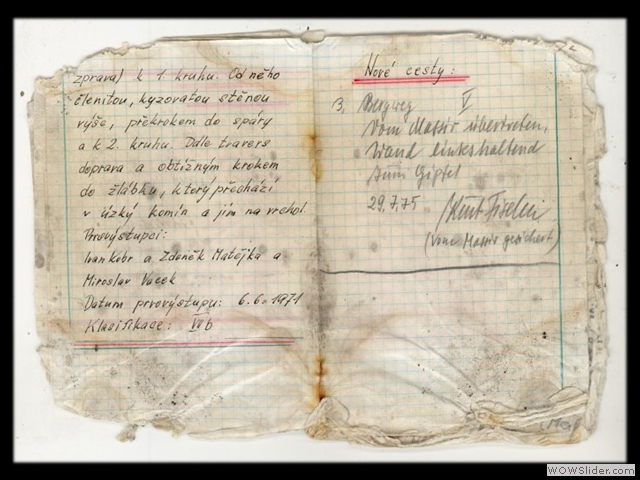 zprava) k 1. kruhu. Od něho
členitou, kyzovatou stěnou
výše, překrokem do spáry
a k 2. kruhu. Dále travers
doprava a obtížným krokem
do žlábku, který přechází
v úzký komín a jím na vrchol.
Prvovýstupci:
Ivan Kobr a Zdeněk Matějka a
Miroslav Vacek
Datum prvovýstupu: 6.6.1971
Klasifikace: VIIb
Nové cesty:
3, Bergweg V
Vom Massiv übertreten,
Wand linkshaltend
zum Gipfel
29.7.75 Kurt
(vom Massiv gesichert)
WOWSlider.com